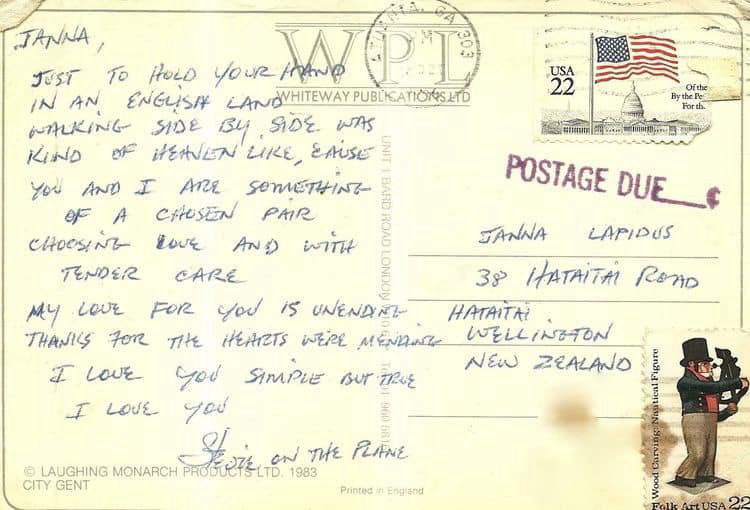 JANNA,
JUST TO HOLD YOUR HAND
IN AN ENGLISH LAND
WALKING SIDE BY SIDE WAS
KIND OF HEAVEN LIKE, CAUSE
YOU AND I ARE SOMETHING
OF A CHOSEN PAIR
CHOOSING LOVE AND WITH
TENDER CARE
MY LOVE FOR YOU IS UNENDING
THANKS FOR THE HEARTS WERE MENDING
I LOVE YOU SIMPLE BUT TRUE
I LOVE YOU
Stevie ON THE PLANE
© LAUGHING MONARCH PRODUCTS LTD. 1983
CITY GENT
WPL
WHITEWAY PUBLICATIONS LTD
UNIT 1 BAIRD ROAD LONDON
Printed in England
ATLANTA, GA 303
PM
USA
22
Of the
By the Pe
For th
POSTAGE DUE ¢
JANNA LAPIDUS
38 HATAITAI ROAD
HATAITAI
WELLINGTON
NEW ZEALAND
Wood Carving: Nautical Figure
Folk Art USA 22